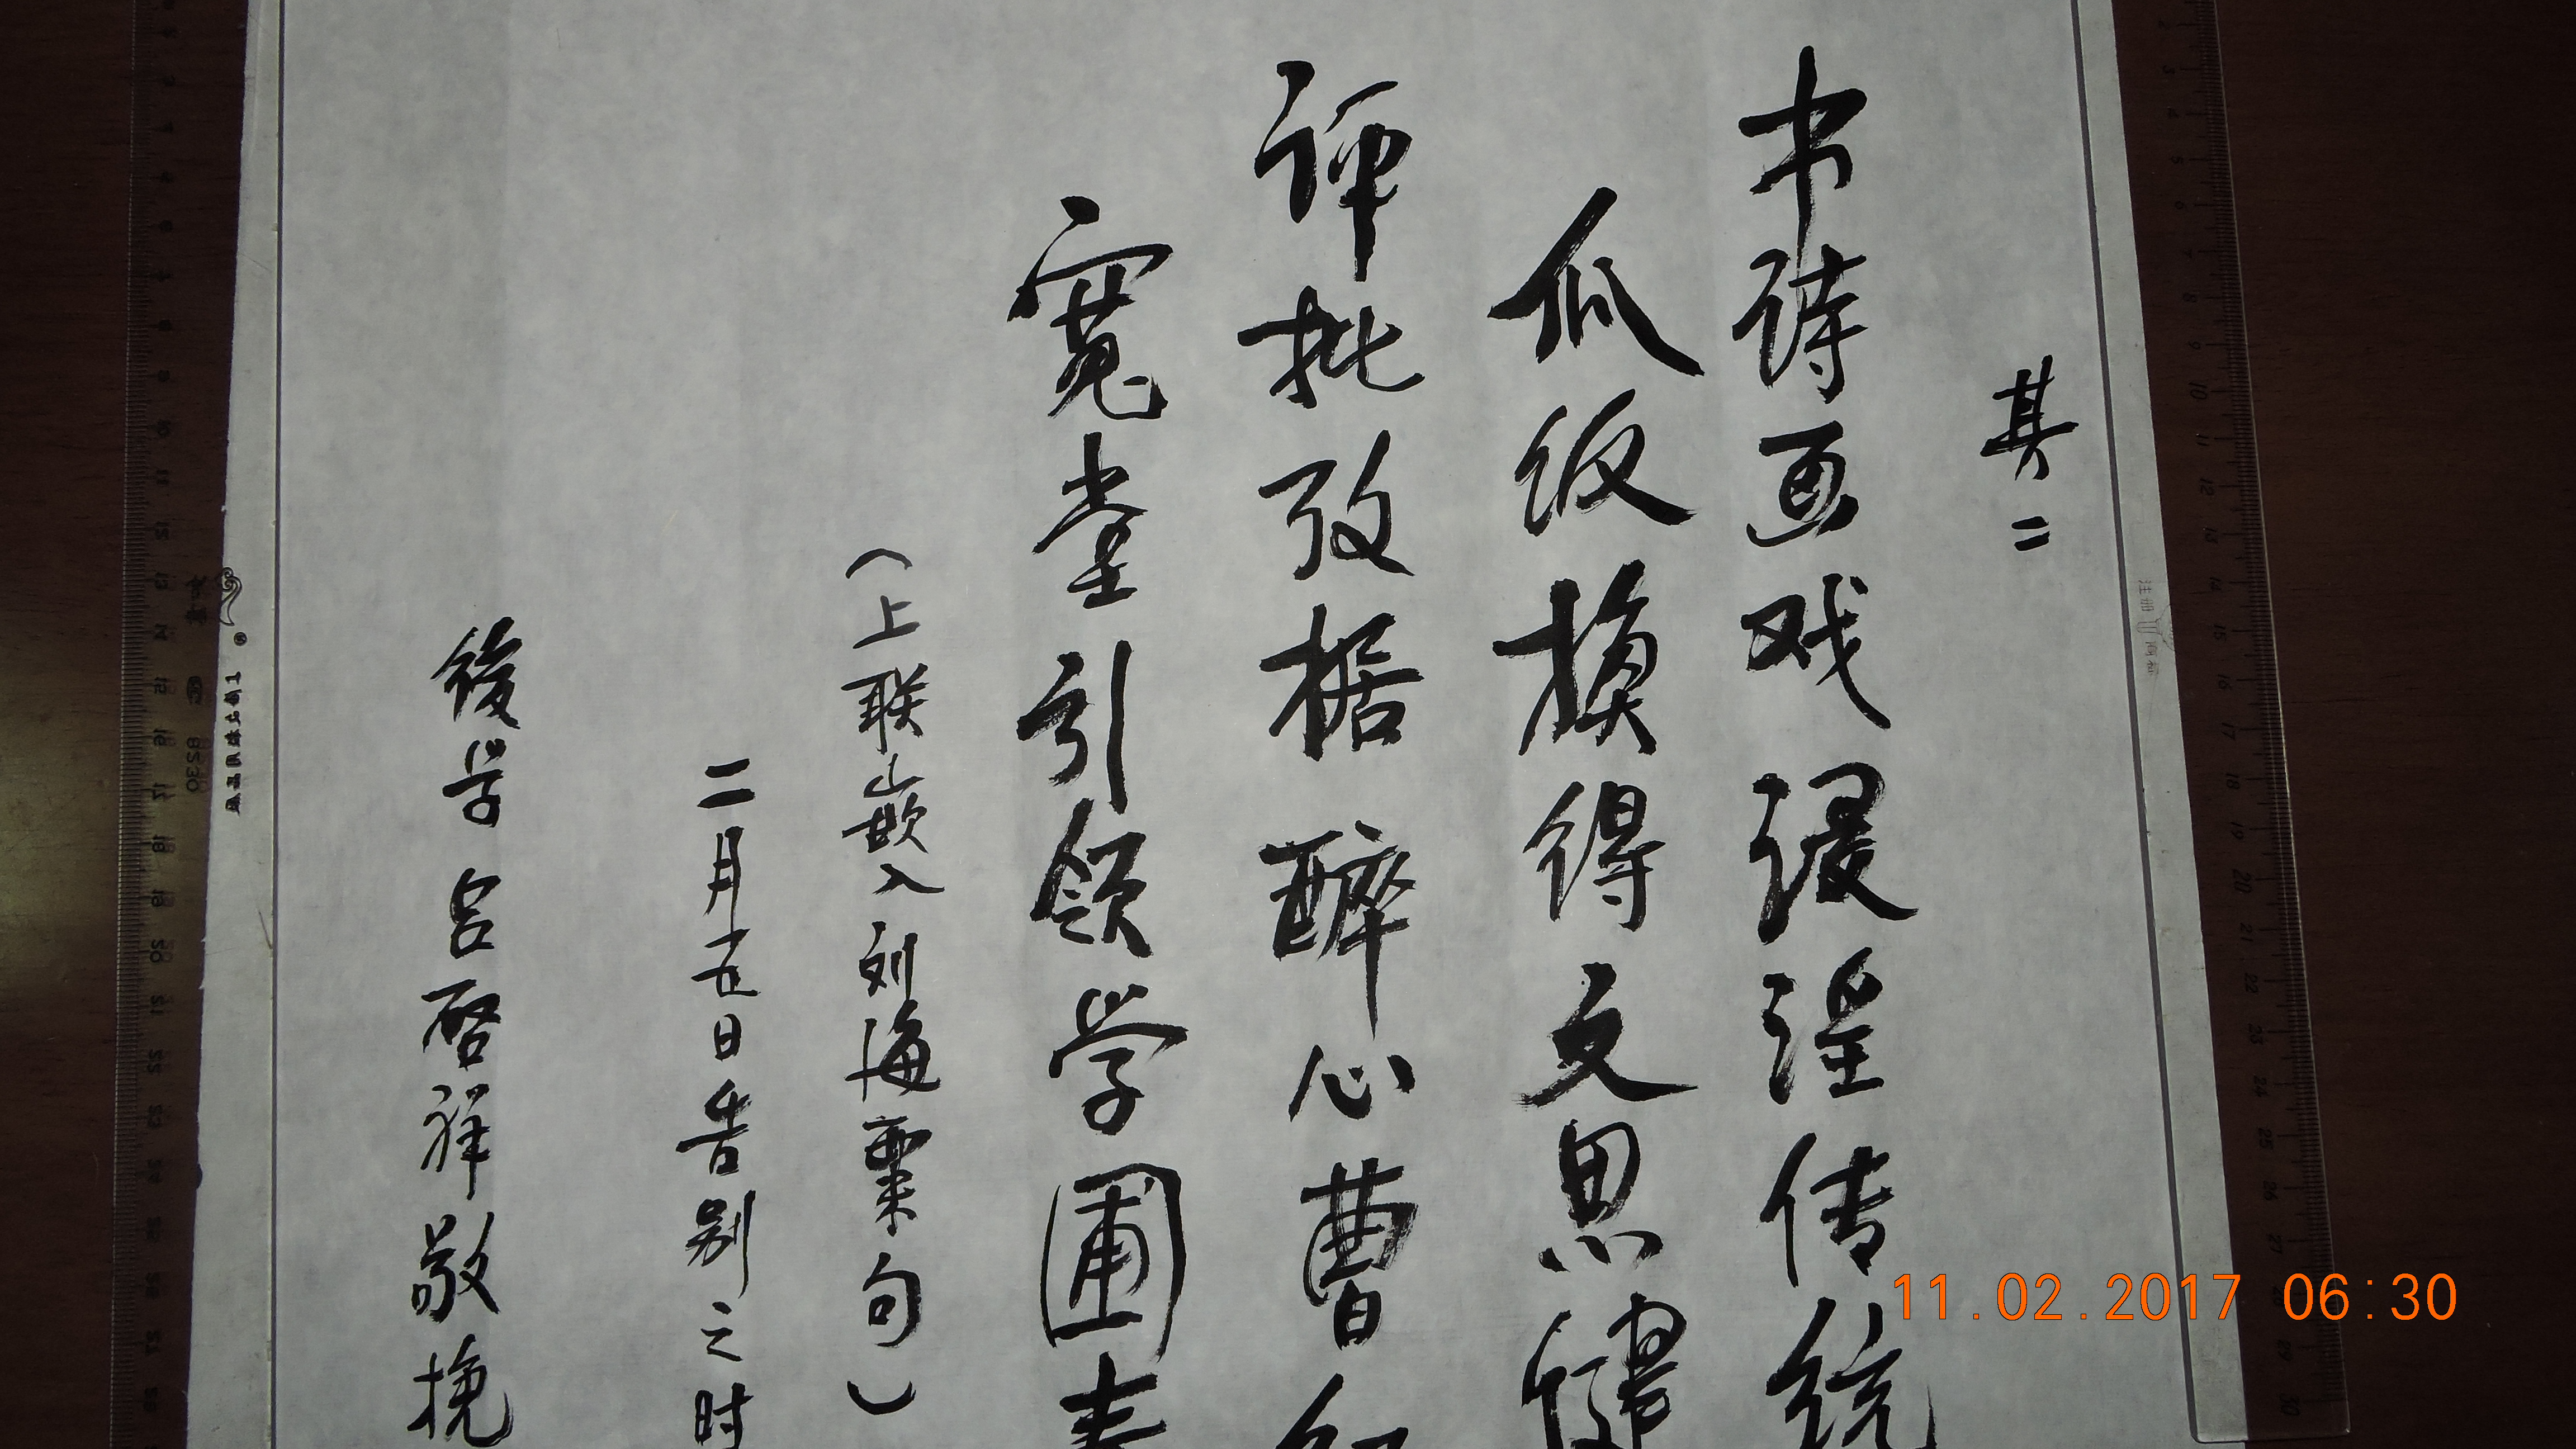 其二
书诗画戏浸淫传统
瓜饭换得文思健
评批攷据醉心曹
寬堂引领学圃
（上联嵌入刘海粟句）
二月五日告别之时
後学吕启祥敬挽
11.02.2017 06:30